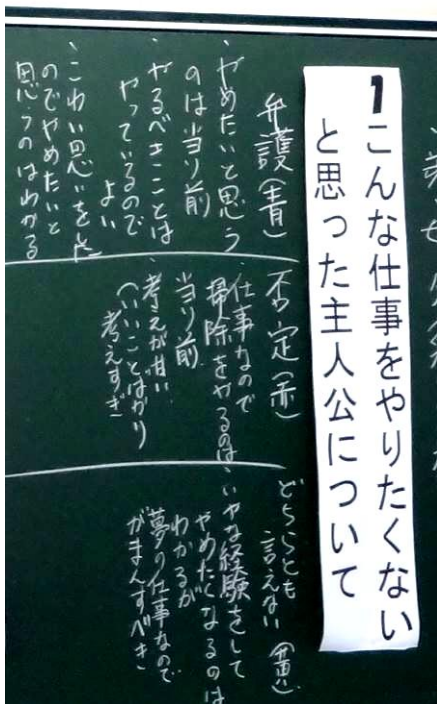 1こんな仕事をやりたくない
と思った主人公について
弁護(青)
・やめたいと思う
のは当り前
・やるべきことは
やっているので
よい
・こわい思いをした
のでやめたいと
思うのはわかる
否定(赤)
・仕事なので
掃除をやるのは
当り前
・考えが甘い
(いいことばかり
考えすぎ
どちらとも
言えない(黄)
・いやな経験をして
やめたくなるのは
わかるが
夢の仕事なので
がまんすべき